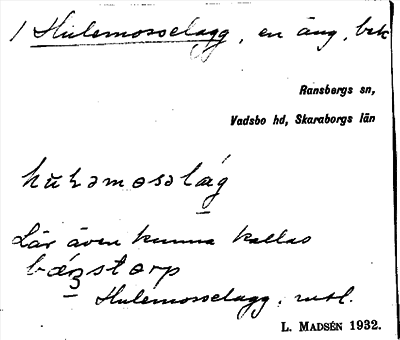 1 Hulemosselagg, en äng, bek
Ransbergs sn,
Vadsbo hd, Skaraborgs län
Lär även kunna kallas
Hulemosselagg,
L. MADSÉN 1932.